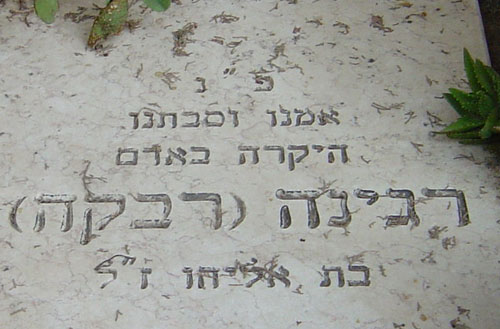 פ"נ
אמנו וסבתנו
היקרה באדם
רגינה (רבקה)
בת אליהו ז"ל